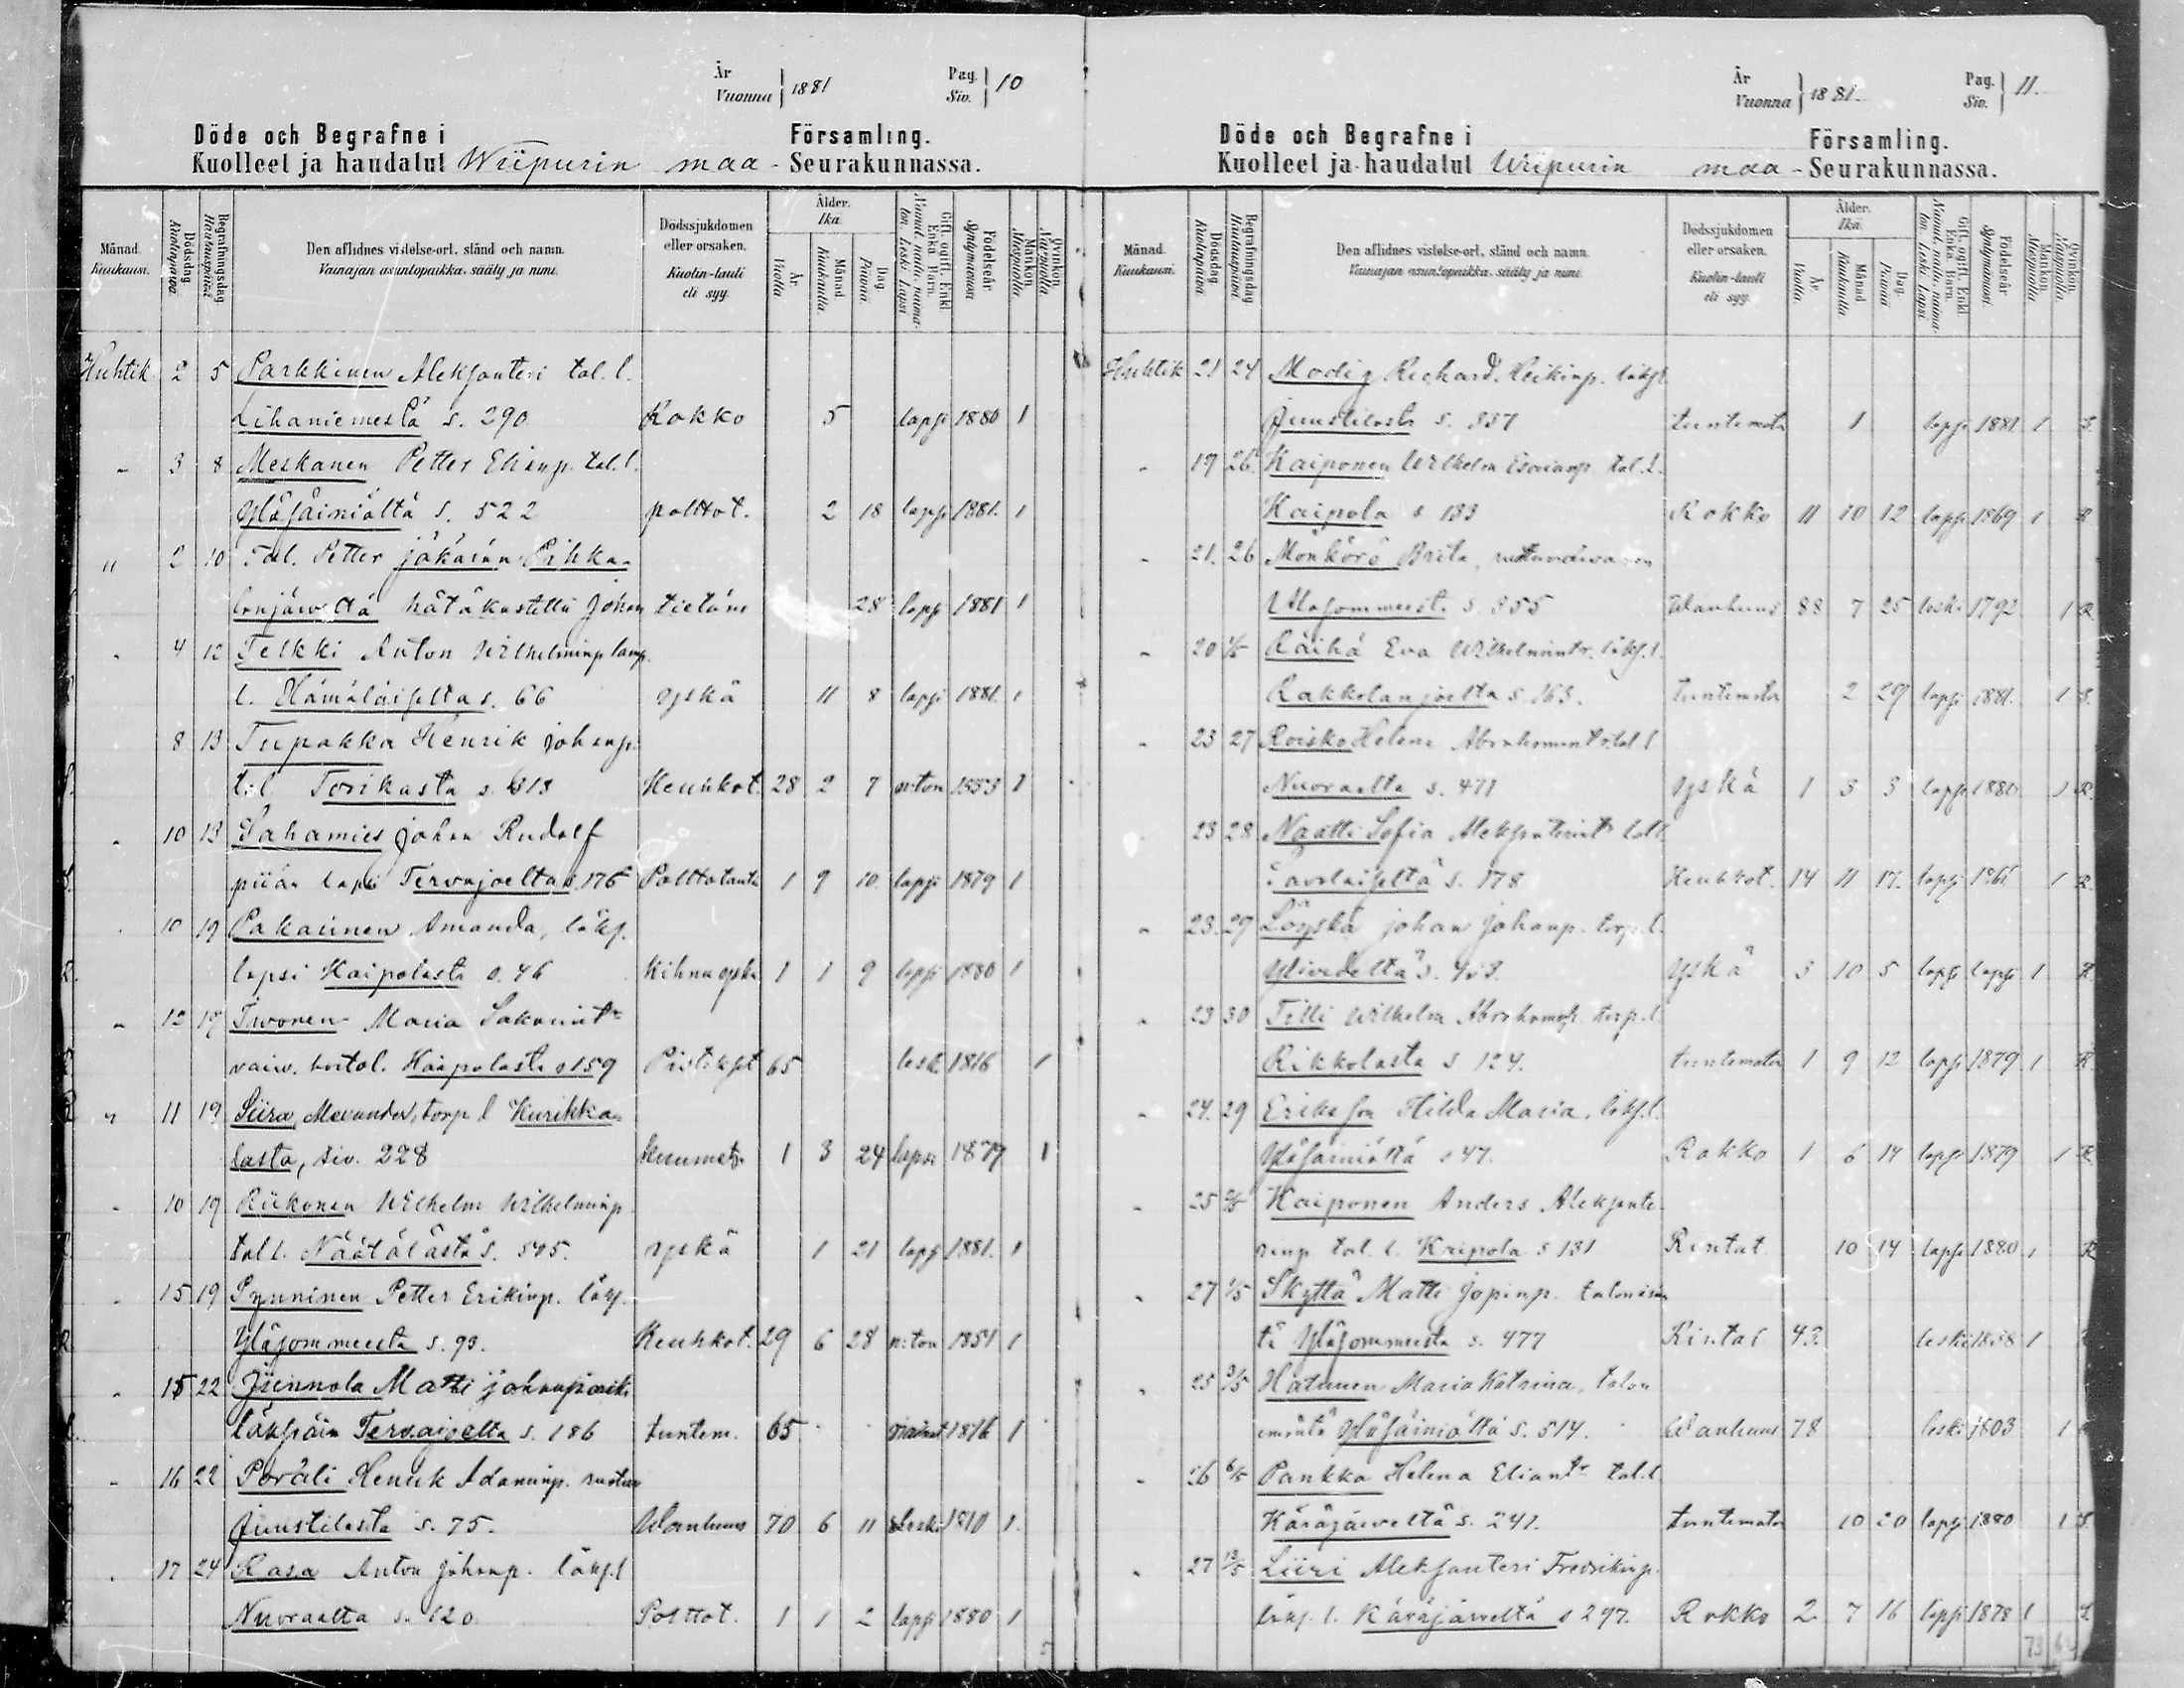 År Vuonna 1881 Pag. Siv. 10
Döde och Begrafne i Församling.
Kuolleet ja haudatut Wiipurin maa- Seurakunnassa.
Månad. Kuukausi. Dödsdag Kuolinpäivä Begrafningsdag Hautauspäivä Den aflidnes vistelse-ort, stånd och namn. Vainajan asuntopaikka, sääty ja nimi. Dödssjukdomen eller orsaken. Kuolin-tauti eli syy. Ålder. Ikä. År Vuotta Månad Kuukautta. Dag Päivää Gift, ogift, Enkl. Enka Barn. Nainut, naim. naimaton. Leski. Lapsi Födelseår Syntymävuosi Mankön Miespuolia Qvinkön Naispuolia
Huhtik. 2 5 Parkkinen Aleksanteri tal. l.
Lihaniemestä s. 290 Rokko 5 lapsi 1880 1
" 3 8 Meskanen Petter Elianp. tal. l.
Yläsäiniältä s. 522 polttot. 2 18 lapsi 1881. 1
" 2 10 Tal. Petter Jäkäsän Pihka-
lanjärveltä hätäkastettu Johan tietäm 28 lapsi 1881 1
" 4 12 Telkki Anton Wilhelminp lamp.
l. Hämäläiseltä s. 66 yskä 11 8 lapsi 1881. 1
8 13 Tupakka Henrik Johanp.
tal. Torikasta s. 313 Keuhkot. 28 2 7 n:ton 1853 1
" 10 13 Sahamies Johan Rudolf
piian lapsi Tervajoelta s. 176 Polttotauti 1 9 10 lapsi 1879 1
10 19 Pakarinen Amanda, läks.
lapsi Kaipolasta s. 46 Kihnu yskä 1 1 9 lapsi 1880 1
" 12 19 Iivonen Maria Sakarint:r
vaiw. hoitol. Haapolasta s 159 Pistokset 65 leski 1816 1
" 11 19 Siira, Alexander, torp. l Kurikka-
lasta, siv. 228 tuntemat. 1 3 24 lapsi 1879 1
" 10 19 Riikonen Wilhelm Wilhelminp
tal l. Näätälästä s. 545. yskä 1 21 lapsi 1881. 1
" 15 19 Synninen Petter Erikinp. läks.
Yläsommeesta s. 93. Keuhkot. 29 6 28 n:ton 1851 1
" 15 22 Matti
läksiäin Tervajoelta s. 186 tuntem. 65 1816 1
" 16 22 Poräli Henrik Adaminp. ruotuv
Juustilasta s. 75. Wanhuus 70 6 11 Leski 1810 1.
" 17 24 Rasa Anton Johanp. läks. l
Nuoraalta s. 120 Polttot. 1 1 2 lapsi 1880 1
År Vuonna 1881. Pag. Siv. 11.
Döde och Begrafne i Församling.
Kuolleet ja haudatut Wiipurin maa- Seurakunnassa.
Månad. Kuukausi. Dödsdag Kuolinpäivä Begrafningsdag Hautauspäivä Den aflidnes vistelse-ort, stånd och namn. Vainajan asuntopaikka, sääty ja nimi. Dödssjukdomen eller orsaken. Kuolin-tauti eli syy. Ålder. Ikä. År Vuotta Månad Kuukautta Dag Päivää Gift, ogift, Enkl. Enka Barn. Nainut, naim. naimaton. Leski. Lapsi Födelseår Syntymävuosi Mankön Miespuolia Qvinkön Naispuolia
Huhtik 21 24 Modig Richard Heikinp. läks l.
Juustilasta s. 337 tuntematon 1 lapsi 1881 1 S.
" 19 26 Kaiponen Wilhelm Esaianp. tal. l.
Kaipola s 133 Rokko 11 10 12 lapsi 1869 1 R
" 21. 26 Mönkörö Brita, ruotuvaivanen
Alasommeesta s. 355 Wanhuus 88 7 25 leski 1792 1 R
" 20 1/5 Räihä Eva Wilhelmint:r. läks. l.
Rakkolanjoelta s. 163. tuntematon 2 29 lapsi 1881. 1 S.
" 23 27 Roisko Helena Abrahamint:r tal. l
Nuoraalta s. 471 yskä 1 3 3 lapsi 1880 1 R.
" 23 28 Naatti Sofia Aleksanterint:r tal l.
s. 178 Keuhkot. 14 11 17. lapsi 1866 1 R
" 23. 29 Löyskä Johan Johanp. torp. l.
Ylividelta s. yskä 3 10 5 lapsi lapsi 1 R
" 23 30 Tilli Wilhelm Abrahamp. torp. l.
Rikkolasta s 124. tuntematon 1 9 12 lapsi 1879 1 R
" 24. 29 Erikson Hilda Maria, läks. l.
Yläsäiniältä s 47. Rokko 1 6 14 lapsi 1879 1 R
" 25 Kaiponen Anders Aleksante-
rinp. tal. l. Kaipola s 131 Rintat. 10 14 lapsi 1880 1 R
" 27 1/5 Skyttä Matti Jopinp. talonisän
tä Yläsommeesta s. 477 Rintat 43. leski 1838 1
" 25 3/5 Hatunen Maria Katrina, talon
emäntä Yläsäiniältä s. 514. Wanhuus 78 leski 1803 1
" 26 6/5 Pankka Helena Eliant:r tal. l
Käräjärveltä s. 241. tuntematon 10 20 lapsi 1880 1 S.
" 27 13/5 Liiri Aleksanteri Fredrikinp.
läks. l. Käräjärveltä s 297. Rokko 2 7 16 lapsi 1878 1 S
73 64